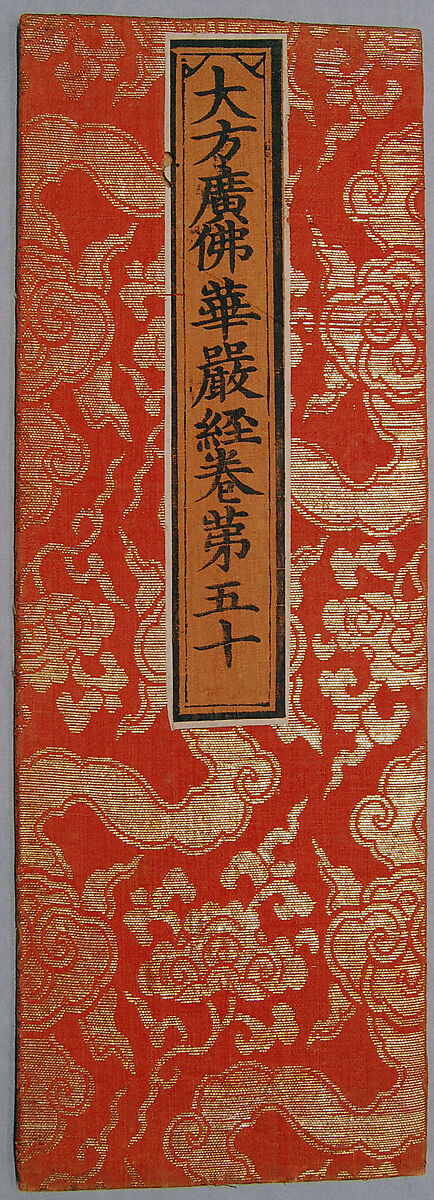 大方廣佛華嚴經卷苐五十